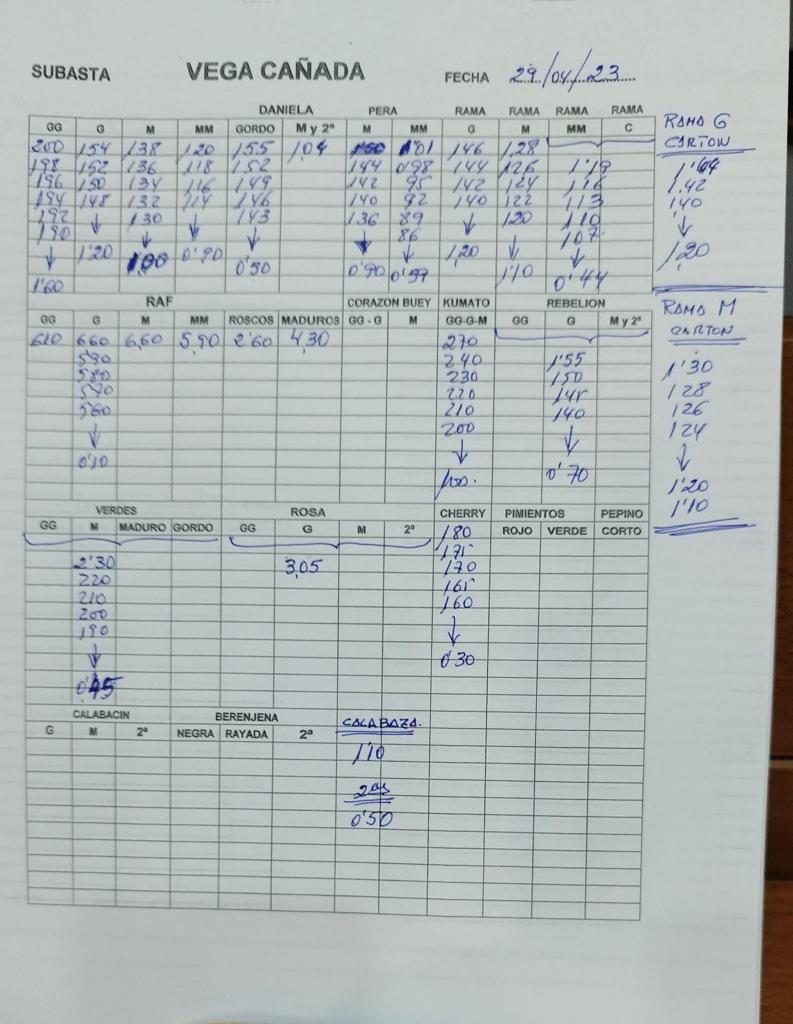 SUBASTA VEGA CAÑADA FECHA 29/04/23
DANIELA PERA RAMA RAMA RAMA RAMA
GG G M MM GORDO M y 2ª M MM G M MM C
RAMA G
CARTON
200 154 138 120 155 104 1'01 146 1,28
198 152 136 118 152 144 0'98 144 126 1'19
196 150 134 116 149 142 95 142 124 116
194 148 132 114 146 140 92 140 122 113
192 ↓ 130 ↓ 143 136 89 ↓ 120 110
190 ↓ ↓ ↓ 86 ↓ 107
↓ 1'20 1,00 0'90 0'50 0'90 0'59 1,20 1'10 ↓ 0'44
1'60
1'44
1.42
140
↓
1,20
RAF CORAZON BUEY KUMATO REBELION
GG G M MM ROSCOS MADUROS GG - G M GG-G-M GG G M y 2ª
RAMA M
CARTON
610 660 6,60 5,90 2'60 4,30 270
590 240 1'55
580 230 150
570 220 145
560 210 140
↓ 200 ↓
0'10 ↓ 0'70
100.
1'30
128
126
124
↓
1'20
1'10
VERDES ROSA CHERRY PIMIENTOS PEPINO
GG M MADURO GORDO GG G M 2ª 180 ROJO VERDE CORTO
175
2'30 3,05 170
220 165
210 160
200 ↓
190
↓ 0'30
0'45
CALABACIN BERENJENA CALABAZA.
G M 2ª NEGRA RAYADA 2ª
1'10
2as
0'50